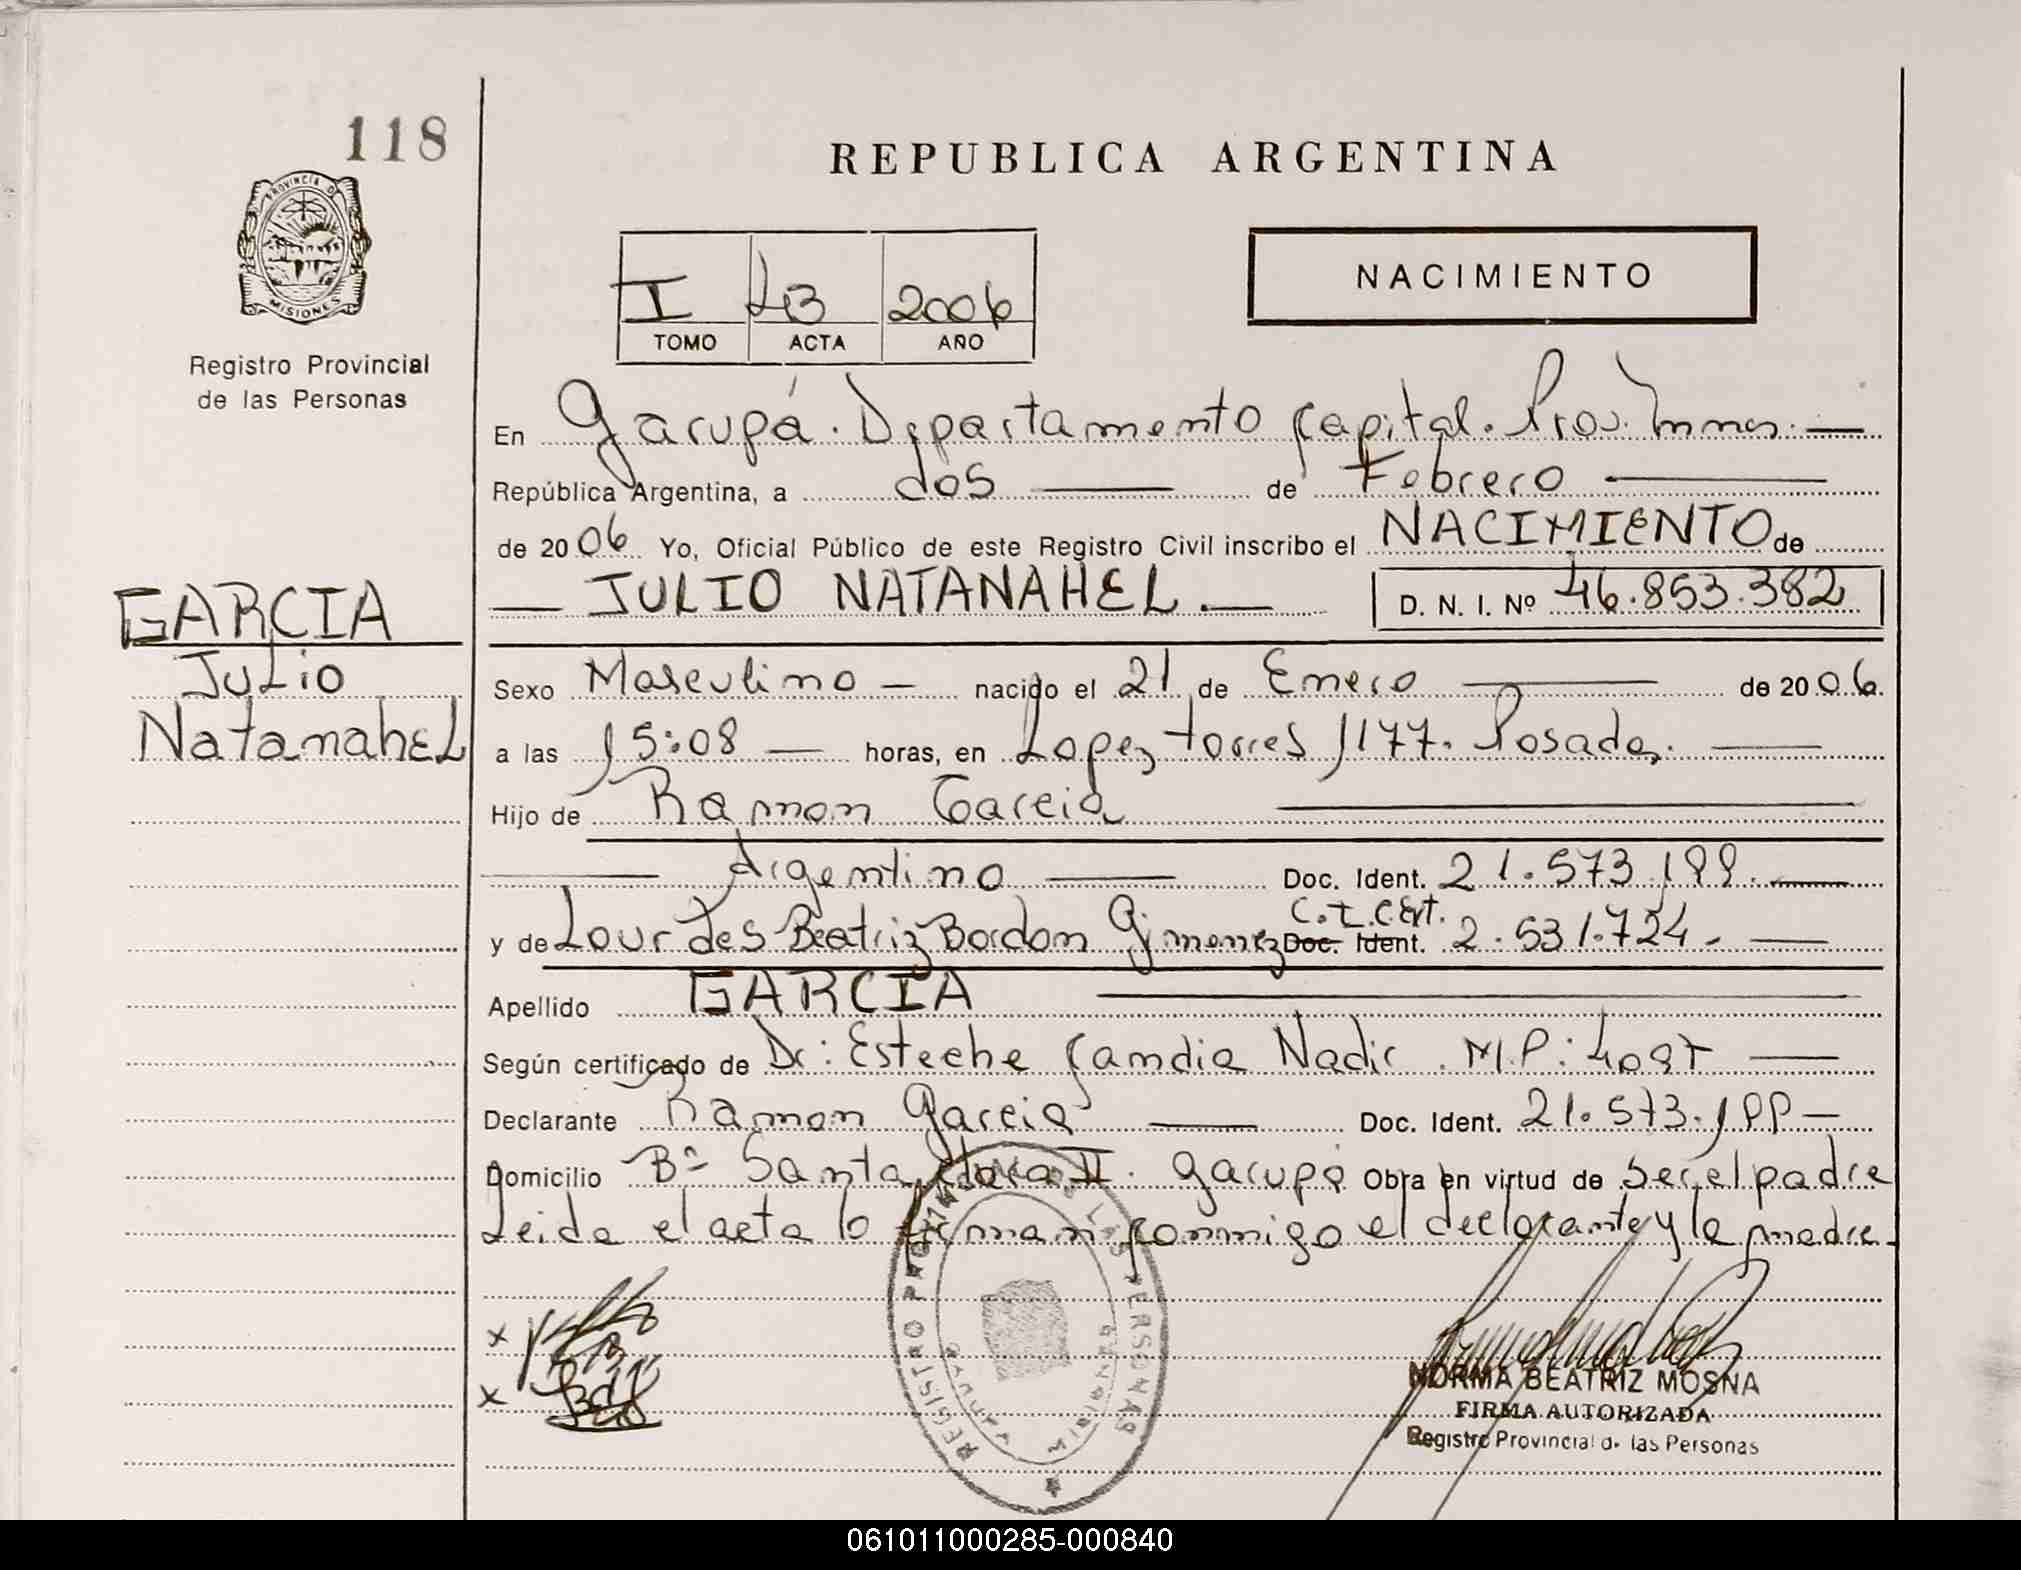 118
REPUBLICA ARGENTINA
PROVINCIA D MISIONES
NACIMIENTO
I 43 2006
TOMO ACTA AÑO
Registro Provincial
de las Personas
En Garupá. Departamento Capital. Prov. Mnes.
República Argentina, a dos de Febrero
de 2006 Yo, Oficial Público de este Registro Civil inscribo el NACIMIENTO de
JULIO NATANAHEL. D. N. I. Nº 46.853.382
GARCIA
Julio
NatanahEL
Sexo Masculino nacido el 21 de Enero de 2006.
a las 15:08 horas, en Lopez torres 1177. Posadas.
Hijo de Ramon Garcia
Argentino Doc. Ident. 21.573.188.
C.I.CExt.
y de Lourdes Beatriz Bordon Gimenez Doc. Ident. 2.531.724.
Apellido GARCIA
Según certificado de Dr: Esteche Candia Nadir. M.P:
Declarante Ramon Garcia Doc. Ident. 21.573.188
Domicilio Bº Santa Clara II. Garupá Obra en virtud de ser el padre
Leida el acta lo firman conmigo el declarante y la madre.
x
x
REGISTRO PROVINCIAL DE LAS PERSONAS
NORMA BEATRIZ MOSNA
FIRMA AUTORIZADA
Registro Provincial de las Personas
061011000285-000840